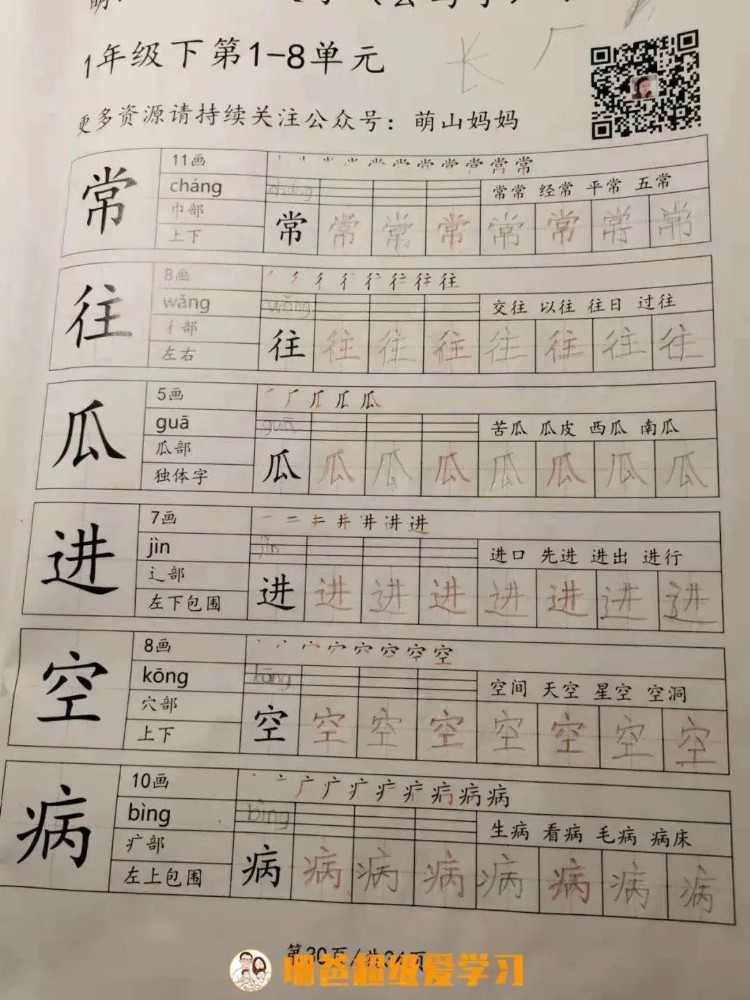 1年级下第1-8单元
更多资源请持续关注公众号：萌山妈妈
长 厂
常
11画
cháng
巾部
上下
cháng
常常 经常 平常 五常
常 常 常 常 常 常 常 常
往
8画
wǎng
彳部
左右
wǎng
交往 以往 往日 过往
往 往 往 往 往 往 往 往
瓜
5画
guā
瓜部
独体字
guā
苦瓜 瓜皮 西瓜 南瓜
瓜 瓜 瓜 瓜 瓜 瓜 瓜 瓜
进
7画
jìn
辶部
左下包围
jìn
进口 先进 进出 进行
进 进 进 进 进 进 进 进
空
8画
kōng
穴部
上下
kōng
空间 天空 星空 空洞
空 空 空 空 空 空 空 空
病
10画
bìng
疒部
左上包围
bìng
生病 看病 毛病 病床
病 病 病 病 病 病 病 病
第30页/共34页
爸超级爱学习